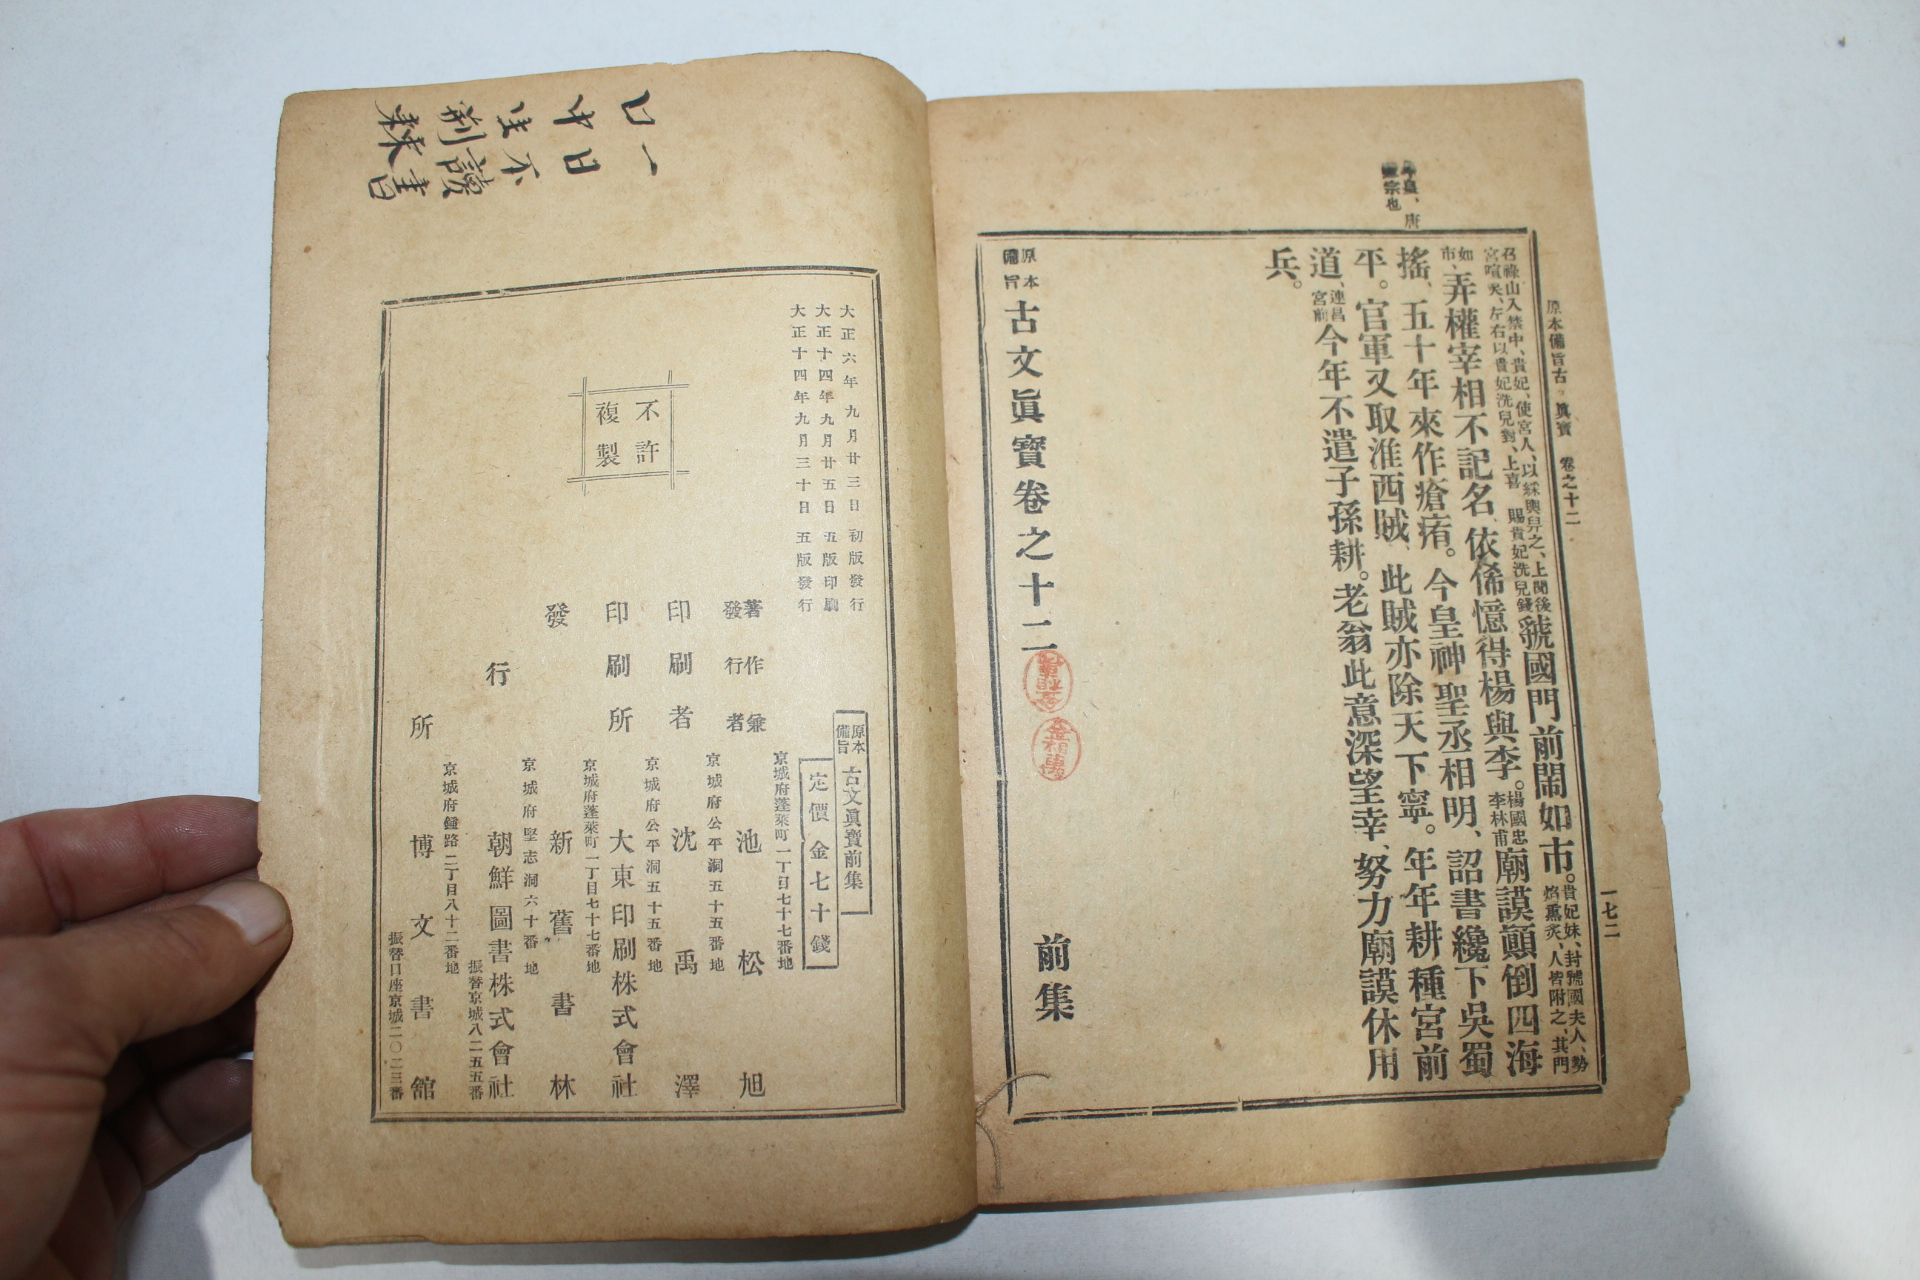 原本備旨古 眞寶 卷之十二
一七二
宗也
召祿山入禁中、貴妃、使宮人、以綵輿舁之、上聞後
宮喧笑、左右以貴妃洗兒對、上喜 賜貴妃洗兒錢
虢國門前鬧如市。
貴妃妹、封虢國夫人、勢
焰熏炙、人皆附之、其門
如市、
弄權宰相不記名、依俙憶得楊與李。
楊國忠
李林甫
廟謨顚倒四海
搖、五十年來作瘡痏。今皇神聖丞相明、詔書纔下吳蜀
平。官軍又取淮西賊、此賊亦除天下寧。年年耕種宮前
道、
連昌
宮前
今年不遣子孫耕。老翁此意深望幸、努力廟謨休用
兵。
原本
備旨
古文眞寶卷之十二 前集
一日不讀書口中生荊棘
大正六年九月廿三日 初版發行
大正十四年九月廿五日 五版印刷
大正十四年九月三十日 五版發行
不許
複製
原本
備旨
古文眞寶前集
定價金七十錢
京城府蓬萊町一丁目七十七番地
著作兼
發行者
池松旭
京城府公平洞五十五番地
印刷者 沈禹澤
京城府公平洞五十五番地
印刷所 大東印刷株式會社
京城府蓬萊町一丁目七十七番地
發 新舊書林
京城府堅志洞六十番地
行 朝鮮圖書株式會社
振替京城八二五五番
京城府鍾路二丁目八十二番地
所 博文書館
振替口座京城二〇二三番